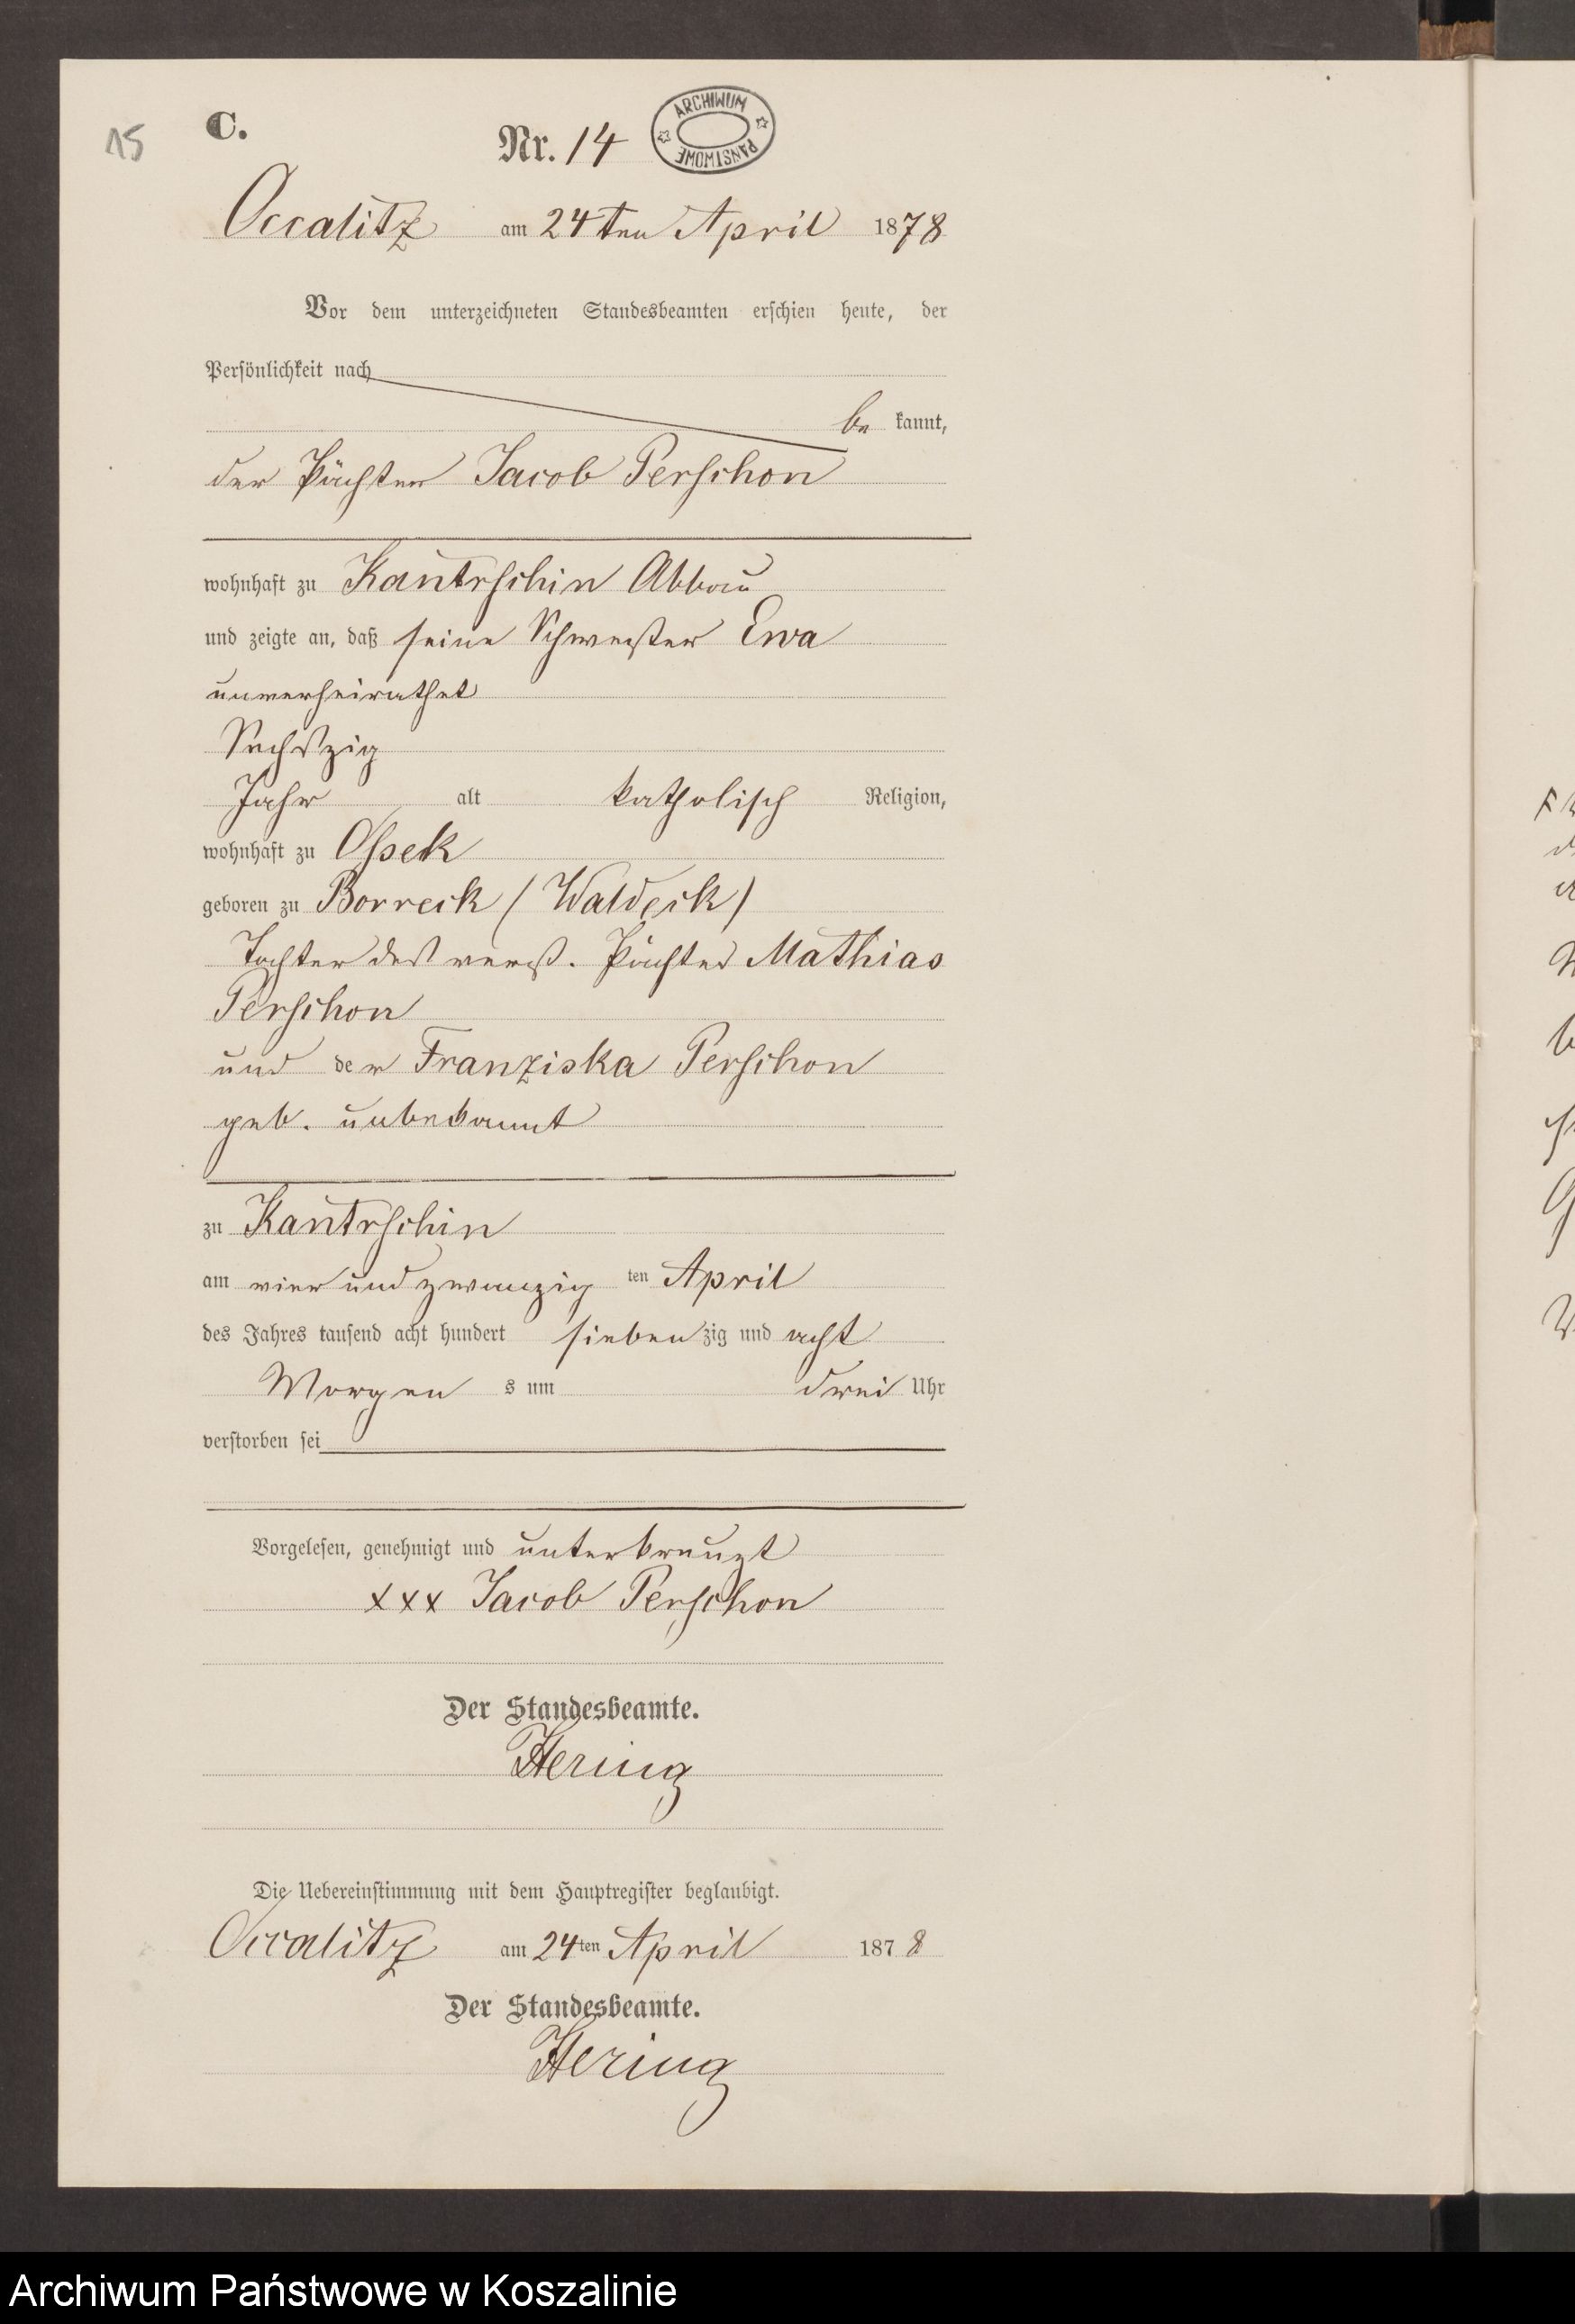 15
C.
Nr. 14
ARCHIWUM PAŃSTWOWE
Occalitz am 24ten April 1878
Vor dem unterzeichneten Standesbeamten erschien heute, der
Persönlichkeit nach
be kannt,
der Pächter Jacob Perschon
wohnhaft zu Kantrschin Abbau
und zeigte an, daß seine Schwester Ewa
unverheirathet
Sechszig
Jahr alt katholisch Religion,
wohnhaft zu Ossek
geboren zu Borreck (Waldeck)
Tochter des verst. Pächter Mathias
Perschon
und der Franziska Perschon
geb. unbekannt
zu Kantrschin
am vier und zwanzig ten April
des Jahres tausend acht hundert sieben zig und acht
Morgen s um drei Uhr
verstorben sei
Vorgelesen, genehmigt und unterkreuzt
xxx Jacob Perschon
Der Standesbeamte.
Hering
Die Uebereinstimmung mit dem Hauptregister beglaubigt.
Occalitz am 24ten April 1878
Der Standesbeamte.
Hering
Archiwum Państwowe w Koszalinie